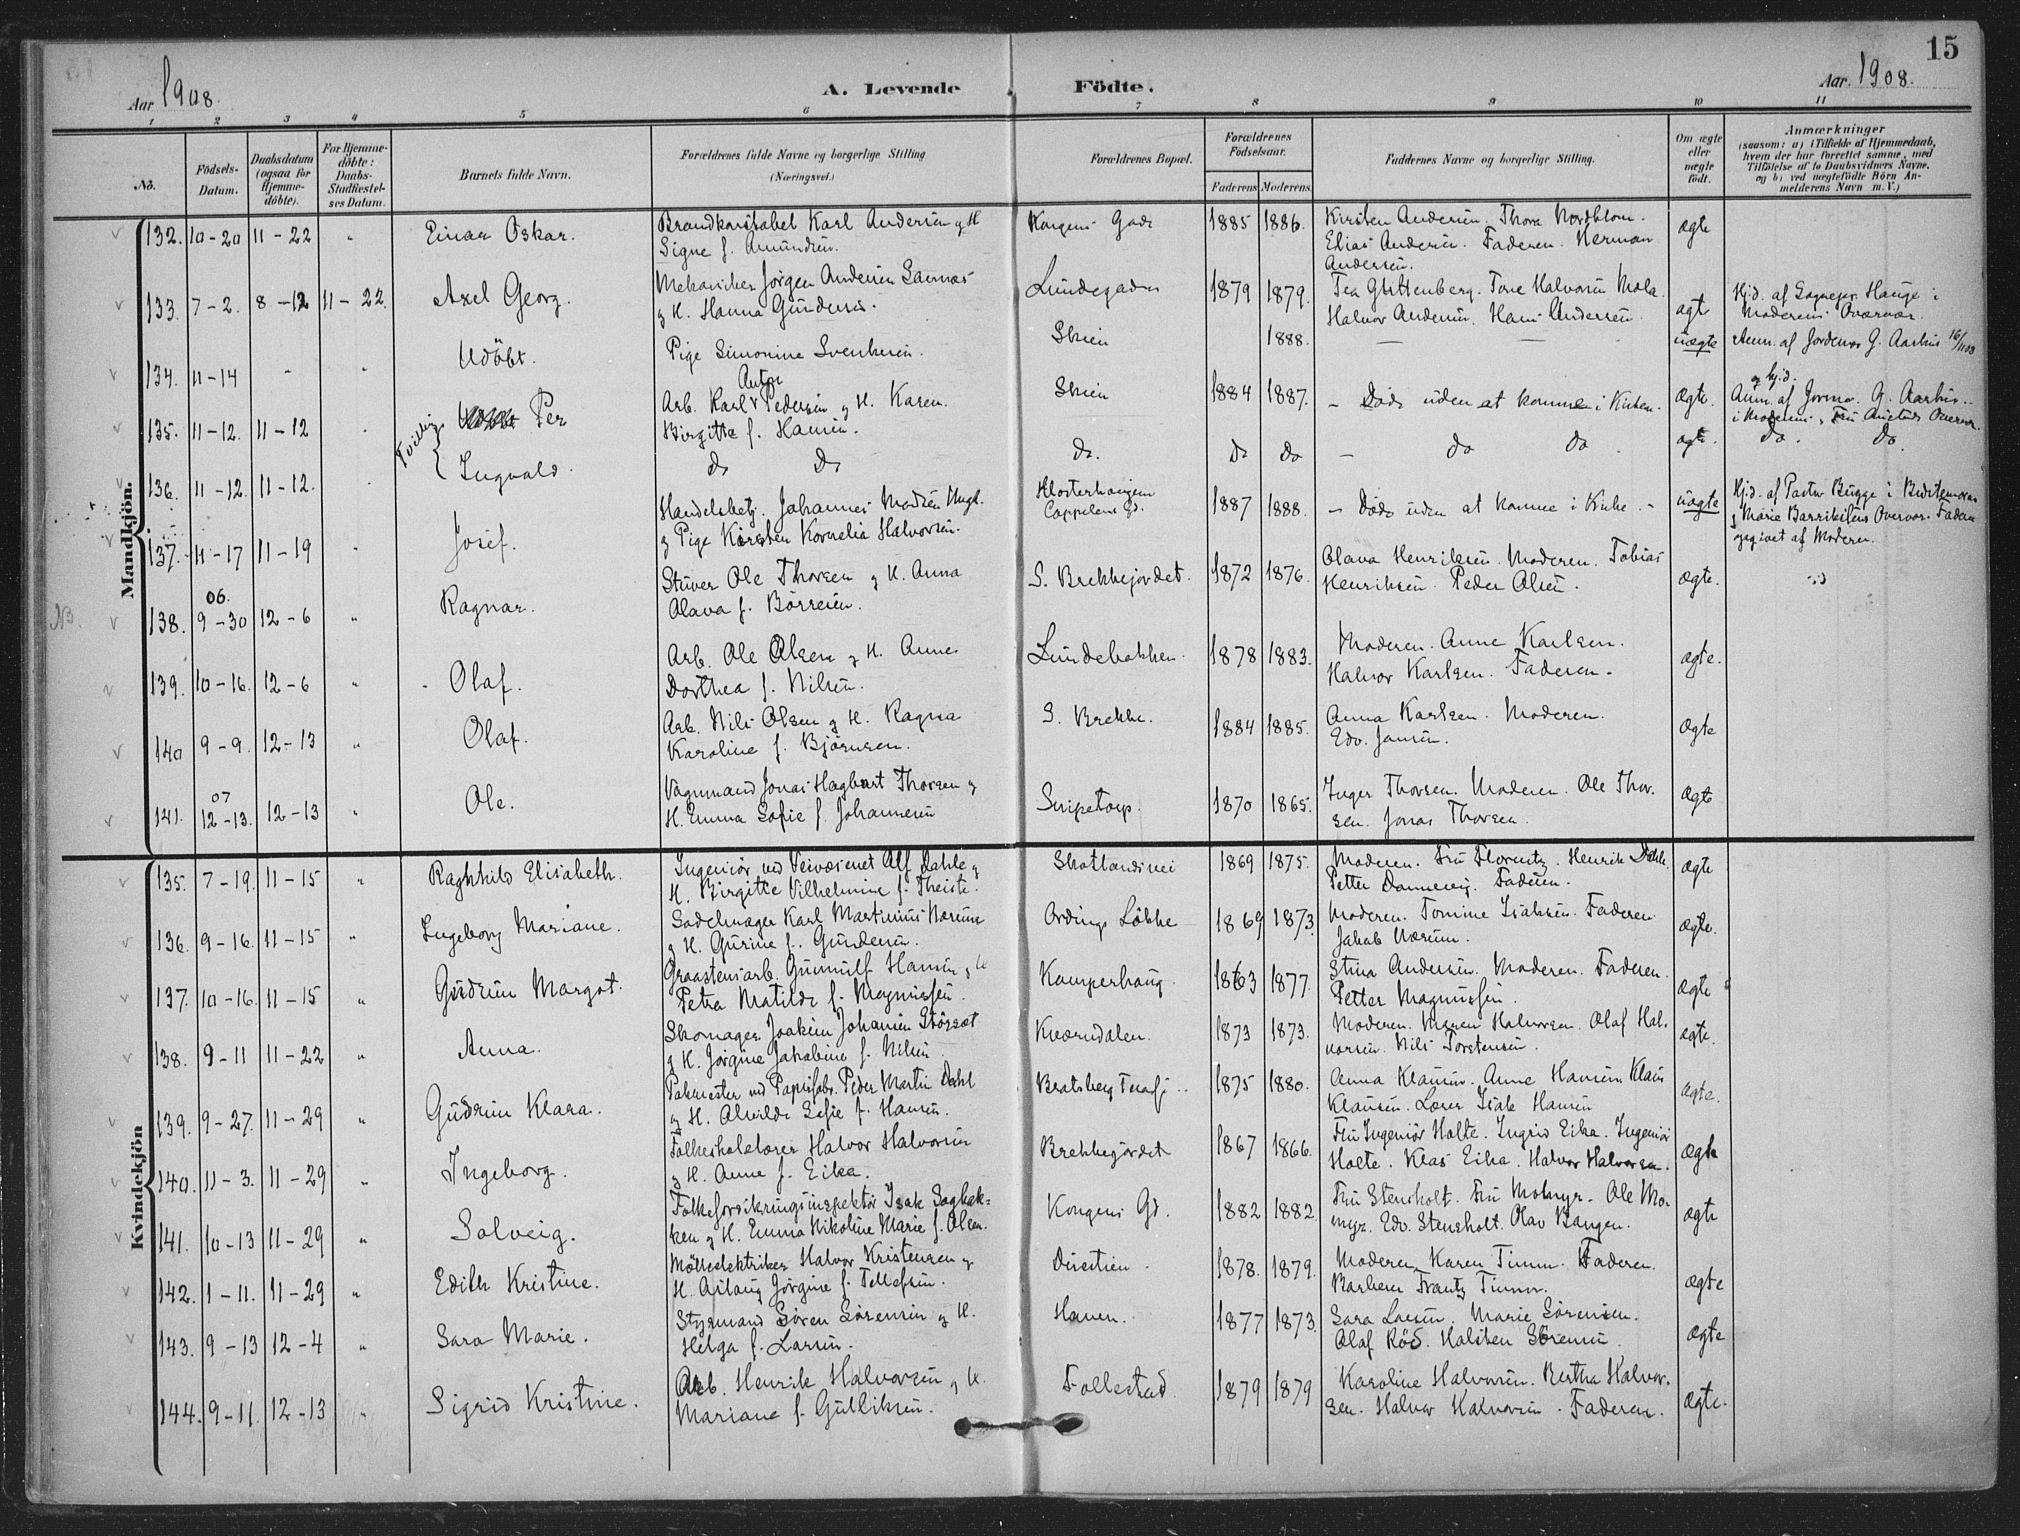 15
Aar 1908.
A. Levende
Födte.
Aar. 1908.
1 2 3 4 5 6 7 8 9 10 11
No.
Födsels-Datum.
Daabsdatum (ogsaa for Hjemme-döbte).
For Hjemme-döbte: Daabs-Stadfæstel-ses Datum.
Barnets fulde Navn.
Forældrenes fulde Navne og borgerlige Stilling
(Næringsvei.)
Forældrenes Bopæl.
Forældrenes Födselsaar.
Faderens Moderens
Faddernes Navne og borgerlige Stilling.
Om ægte eller uægte födt.
Anmærkninger
(saasom: a) i Tilfælde af Hjemmedaab,
hvem der har forrettet samme, med
Tilföielse af to Daabsvidners Navne.
og b) ved uægtefödte Börn An-
melderens Navn m. V.)
Mandkjön.
132. 10-20 11-22 " Einar Oskar. Brandkonstabel Karl Andersen og H. Kongens Gade 1885 1886. Kirsten Andersen. Thora Nordblom. ægte
Signe f. Amundsen. Elias Andersen. Faderen. Herman
Andersen.
133. 7-2. 8-12 11-22. Axel Georg. Mekaniker Jörgen Andersen Lundegaden 1879 1879. Tone Halvorsen Mola. ægt Hjd. af Sognepr. Hauge i
og H. Hanna Gundersen. Halvor Andersen. Hans Andersen. Moderens Overvær.
134. 11-14 " " Udöbt. Pige Simonine Svendsen. Skien 1888. — — — uægte Anm. af Jordmor G. Aarhus 16/11 08
135. 11-12. 11-12 Tvillinger Per Arb. Karl Anton Pedersen og H. Karen. Skien 1884 1887. — Döde uden at komme i Kirken. ægte. Anm. og hjd. af Jormo. G. Aarhus
Birgitte f. Hansen.
136. 11-12. 11-12. Ingvald. do Do do. Do Do — do do ægte. do. do.
137. 11-17 11-19 " Josef. Handelsbetj. Johannes Madsen Ungk. Klosterhaugen 1887 1888. — Döde uden at komme i Kirke. — uægte Hjd. af Pastor Bugge i Bedstemoren
og Pige Kirsten Kornelia Halvorsen. Cappelens Gd. Overvær. Faderen
opgivet af Moderen.
NB. 138. 06. 9-30 12-6 " Ragnar. Stuver Ole Thorsen og H. Anna S. Brekkejordet. 1872 1876. Olava Henriksen. Moderen. Tobias ægte.
Olava f. Börresen. Henriksen. Peder Olsen.
139. 10-16. 12-6 " Olaf. Arb. Ole Olsen og H. Anne Lundebakken. 1878 1883. Moderen. Anne Karlsen. ægte.
Dorthea f. Nilsen. Halvor Karlsen. Faderen.
140 9-9. 12-13 " Olaf. Arb. Nils Olsen og H. Ragna S. Brekke. 1884 1885. Anna Karlsen. Moderen. ægte
Karoline f. Björnsen. Edv. Jansen.
141. 07 12-13. 12-13 " Ole. Vognmand Jonas Hagbart Thorsen og Snipetorp. 1870 1865. Inger Thorsen. Moderen. Ole Thor- ægte
H. Emma Sofie f. Johannesen sen. Jonas Thorsen.
Kvindekjön
135. 7-19. 11-15 " Ragnhild Elisabeth. Ingeniör ved Veivæsenet Alf Dahle og Skotlandsvei 1869 1875. Moderen. Fru Florentz. Henrik Dahle. ægte
H. Birgitte Vilhelmine f. Theiste. Petter Dannevig. Faderen.
136. 9-16. 11-15 " Ingeborg Mariane. Sadelmager Karl Martinius Nærum Ordings Lökke 1869 1873. Moderen. Tomine Isaksen. Faderen ægte.
og H. Gurine f. Gundersen. Jakob Nærum.
137. 10-16. 11-15 " Gudrun Margot. Graastensarb. Gunnulf Hansen og H Kamperhaug. 1863 1877. Stina Andersen. Moderen. Faderen. ægte
Petra Matilde f. Magnussen. Petter Magnussen.
138. 9-11 11-22 " Anna. Skomager Joakim Johansen Kværndalen. 1873 1873. Moderen. Maren Halvorsen. Olaf Hal- ægte.
og H. Jörgine Jakobine f. Nilsen vorsen. Nils Torstensen.
139. 9-27. 11-29 " Gudrun Klara. Pakmester ved Papirfabr. Peder Martin Dahl Bratsberg 1875 1880. Anna Klausen. Anne Hansen. Klaus ægte.
og H. Alvilde Sofie f. Hansen. Klausen. Lærer Isak Hansen
140. 11-3. 11-29 " Ingeborg. Folkeskolelærer Halvor Halvorsen Brekkejordet 1867 1866. Fru Ingeniör Holte. Ingrid Eika. Ingeniör ægte
og H. Anne f. Eika. Holte. Klas Eika. Halvor Halvorsen.
141. 10-13 11-29 " Solveig. Folkeforsikringsinspektör Isak Sagbak- Kongens Gd. 1882 1882 Fru Stensholt. Fru Momyr. Ole Mo- ægte
ken og H. Emma Nikoline Marie f. Olsen. myr. Edv. Stensholt. Olav Bangen.
142. 1-11. 11-29 " Edith Kristine. Mölleelektriker Halvor Kristensen og 1878. 1879. Moderen. Karen Timm. Faderen. ægte
H. Aslaug Jörgine f. Tellefsen. Barberer Frantz Timm.
143. 9-13 12-4 " Sara Marie. Styrmand Sören Sörensen og H. Haven. 1877 1873. Sara Larsen. Marie Sörensen. ægte
Helga f. Larsen. Olaf Röd. Halsten Sörensen.
144. 9-11. 12-13 " Sigrid Kristine. Arb. Henrik Halvorsen og H. Follestad. 1879 1879 Karoline Halvorsen. Bertha Halvor- ægte.
Mariane f. Gulliksen. sen. Halvor Halvorsen. Faderen.